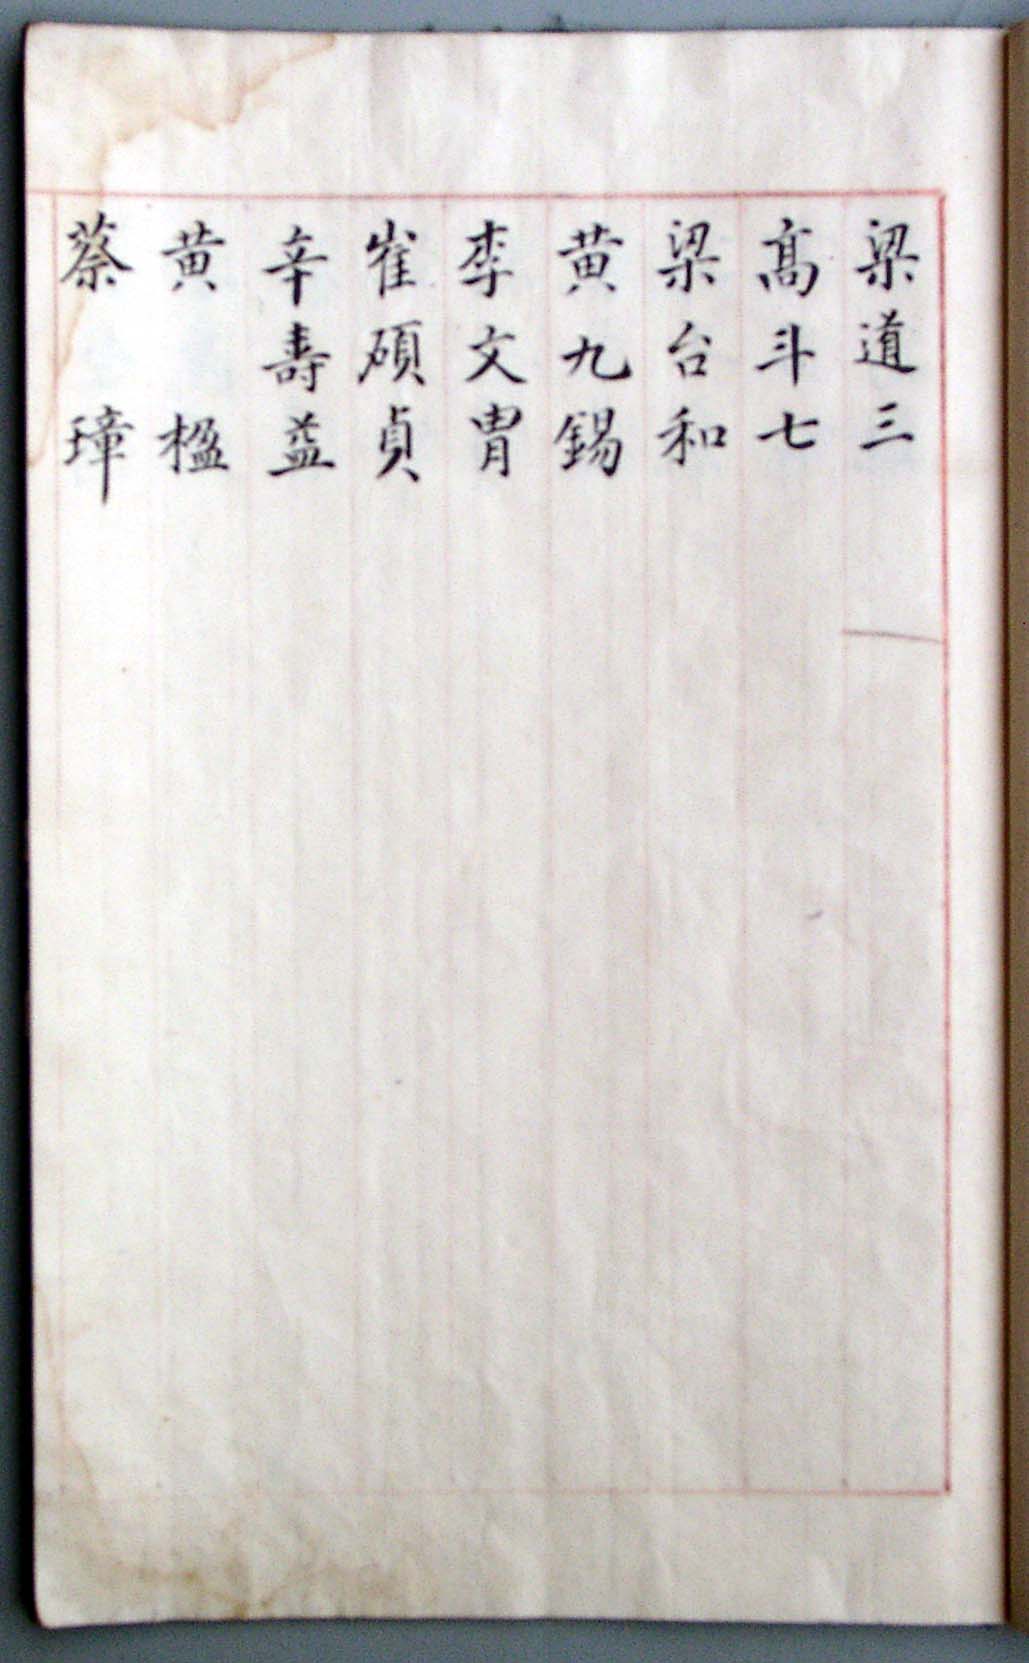 梁道三
髙斗七
梁台和
黄九錫
李文冑
崔碩貞
辛壽益
黄楹
蔡璋